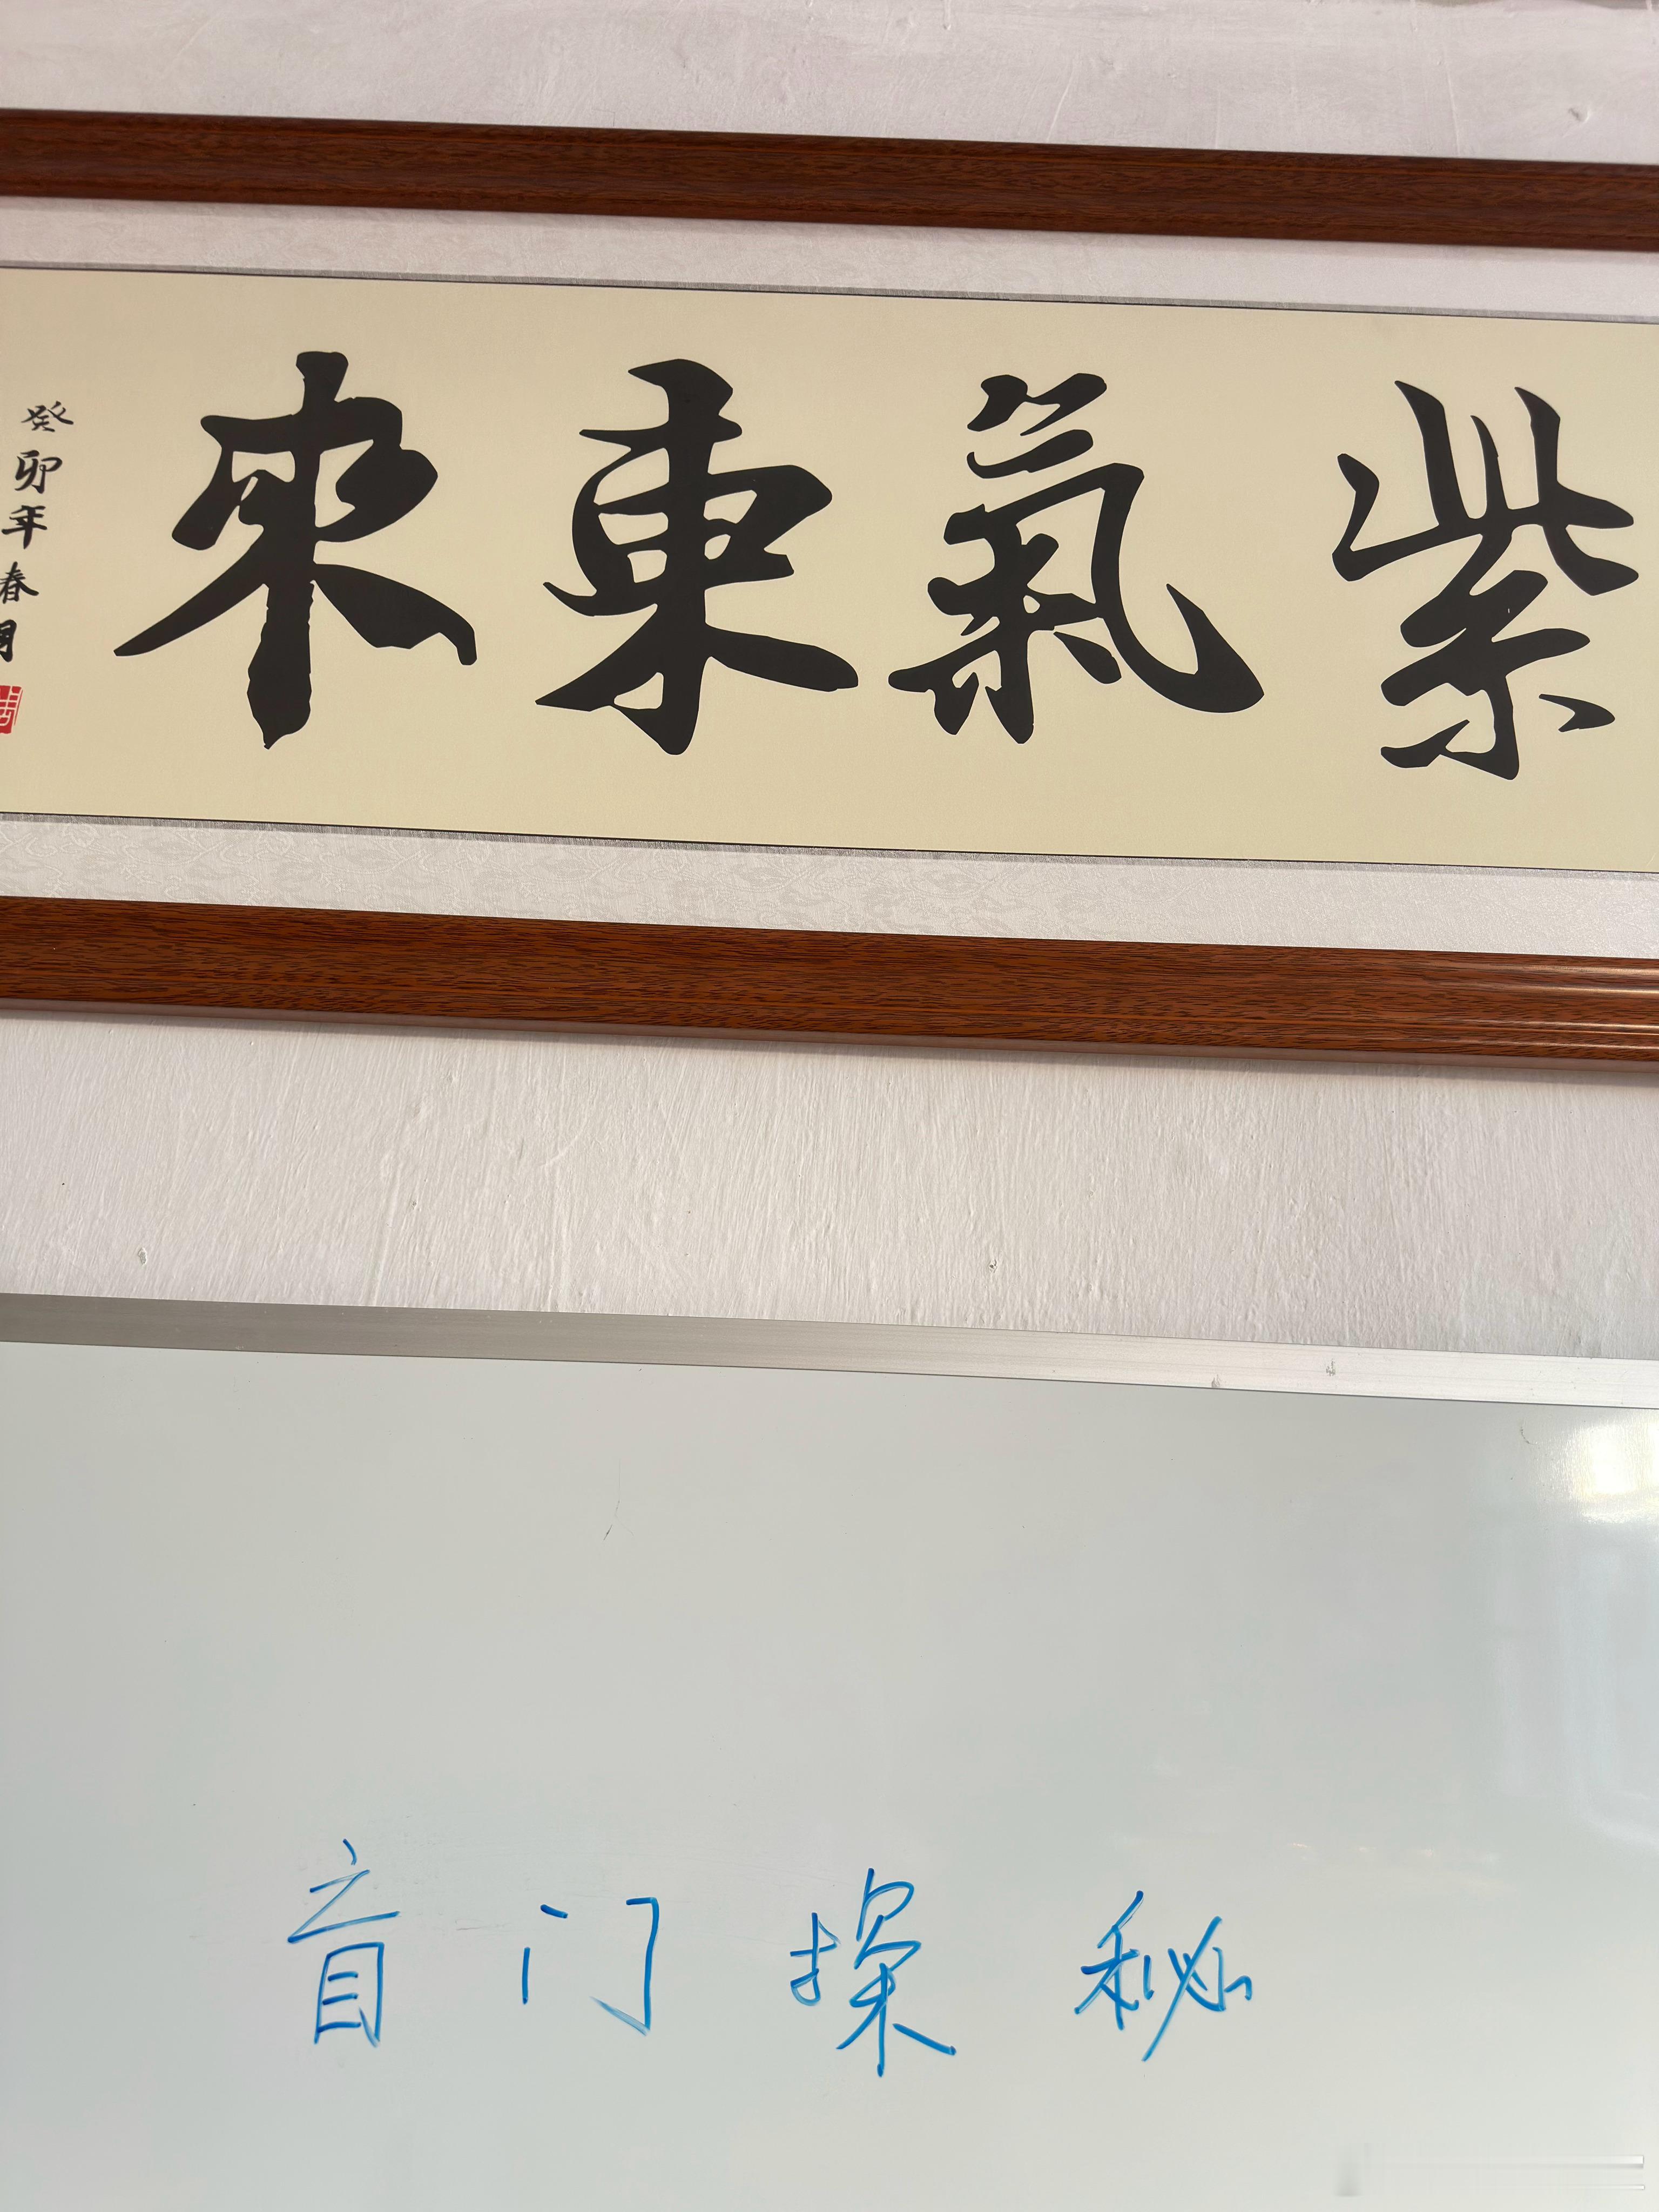 紫氣東來
癸卯年春月
盲门探秘